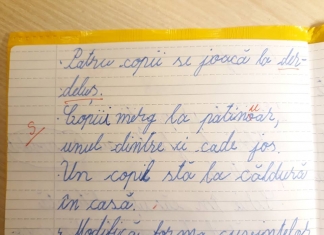 · Patru copii se joacă la der-
deluș.
Copiii merg la patinoar,
unul dintre ei cade jos.
Un copil stă la căldură
în casă.
Modifică forma cuvintelor